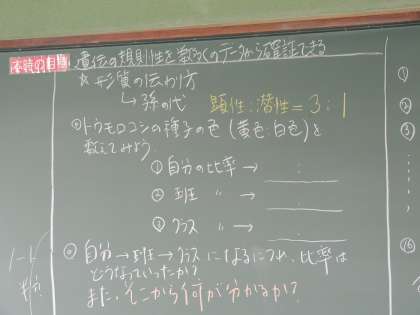 本時の目標 遺伝の規則性を数多くのデータから確証できる
☆形質の伝わり方
↳孫の代 顕性:潜性=3:1
◎トウモロコシの種子の色(黄色:白色)を
数えてみよう
①自分の比率→ :
②班 〃 → :
③クラス 〃 → :
◎自分→班→クラスになるにつれ、比率は
どうなっていったか?
また、そこから何が分かるか?
①
②
③
⑯
ノート